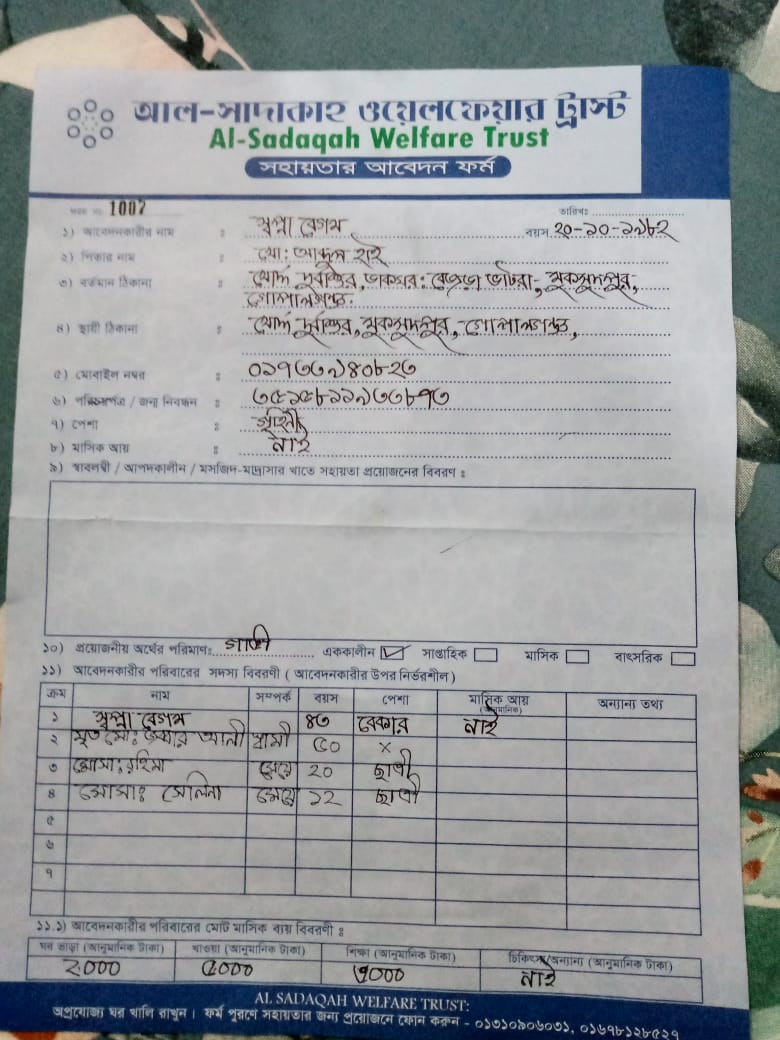 আল-সাদাকাহ ওয়েলফেয়ার ট্রাস্ট
Al-Sadaqah Welfare Trust
সহায়তার আবেদন ফর্ম
1007 তারিখঃ
১) আবেদনকারীর নাম : স্বপ্না বেগম বয়স ২০-১০-১৯৮২
২) পিতার নাম : মো: আব্দুল হাই
৩) বর্তমান ঠিকানা : ডাকঘর: ভাটরা, মুকসুদপুর,
গোপালগঞ্জ.
৪) স্থায়ী ঠিকানা : মুকসুদপুর, গোপালগঞ্জ,
৫) মোবাইল নম্বর : ০১৭৩৩৭৪০৮২৩
৬) পরিচয়পত্র / জন্ম নিবন্ধন :
৭) পেশা : গৃহিনী
৮) মাসিক আয় : নাই
৯) স্বাবলম্বী / আপদকালীন / মসজিদ-মাদ্রাসার খাতে সহায়তা প্রয়োজনের বিবরণ :
১০) প্রয়োজনীয় অর্থের পরিমাণঃ গাভী এককালীন সাপ্তাহিক মাসিক বাৎসরিক
১১) আবেদনকারীর পরিবারের সদস্য বিবরণী ( আবেদনকারীর উপর নির্ভরশীল )
ক্রম নাম সম্পর্ক বয়স পেশা মাসিক আয় (আনুমানিক) অন্যান্য তথ্য
১ স্বপ্না বেগম ৪৩ বেকার নাই
২ মৃত মো: আলী স্বামী ৫০ ×
৩ মোসা: রহিমা মেয়ে ২০ ছাত্রী
৪ মোসাঃ সেলিনা মেয়ে ১২ ছাত্রী
৫
৬
৭
১১.১) আবেদনকারীর পরিবারের মোট মাসিক ব্যয় বিবরণী :
ঘর ভাড়া (আনুমানিক টাকা) খাওয়া (আনুমানিক টাকা) শিক্ষা (আনুমানিক টাকা) চিকিৎসা/অন্যান্য (আনুমানিক টাকা)
২০০০ ৫০০০ নাই
AL SADAQAH WELFARE TRUST:
অপ্রযোজ্য ঘর খালি রাখুন। ফর্ম পুরণে সহায়তার জন্য প্রয়োজনে ফোন করুন - ০১৩১০৯০৬০৩১, ০১৬৭৮১২৮৫২৭